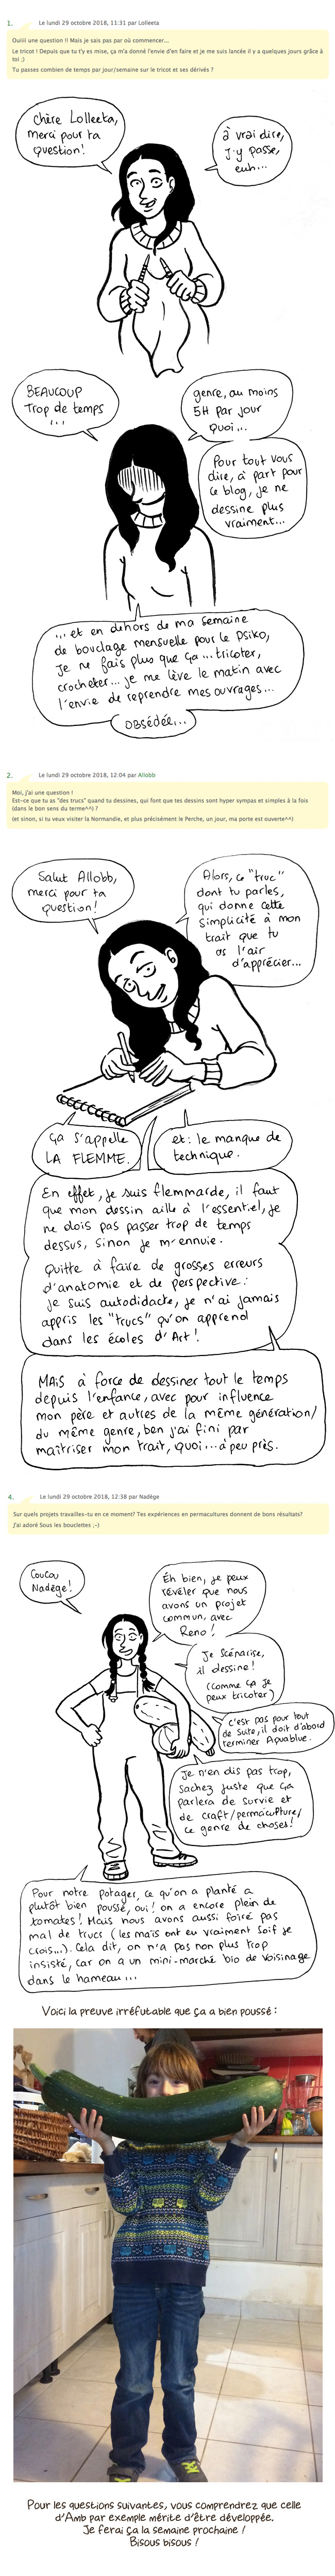 1. Le lundi 29 octobre 2018, 11:31 par Lolleeta
Ouiiii une question !! Mais je sais pas par où commencer...
Le tricot ! Depuis que tu t'y es mise, ça m'a donné l'envie d'en faire et je me suis lancée il y a quelques jours grâce à
toi ;)
Tu passes combien de temps par jour/semaine sur le tricot et ses dérivés ?
Chère Lolleeta,
merci pour ta
question!
à vrai dire,
j'y passe,
euh...
BEAUCOUP
Trop de temps
...
genre, au moins
5H par jour
quoi...
Pour tout vous
dire, à part pour
ce blog, je ne
dessine plus
vraiment...
... et en dehors de ma semaine
de bouclage mensuelle pour le Psiko,
je ne fais plus que ça... tricoter,
crocheter... je me lève le matin avec
l'envie de reprendre mes ouvrages...
OBSÉDÉE...
2. Le lundi 29 octobre 2018, 12:04 par Allobb
Moi, j'ai une question !
Est-ce que tu as "des trucs" quand tu dessines, qui font que tes dessins sont hyper sympas et simples à la fois
(dans le bon sens du terme^^) ?
(et sinon, si tu veux visiter la Normandie, et plus précisément le Perche, un jour, ma porte est ouverte^^)
Salut Allobb,
merci pour ta
question!
Alors, ce "truc"
dont tu parles,
qui donne cette
simplicité à mon
trait que tu
as l'air
d'apprécier...
ça s'appelle
LA FLEMME.
et: le manque de
technique.
En effet, je suis flemmarde, il faut
que mon dessin aille à l'essentiel, je
ne dois pas passer trop de temps
dessus, sinon je m'ennuie.
Quitte à faire de grosses erreurs
d'anatomie et de perspective:
je suis autodidacte, je n'ai jamais
appris les "trucs" qu'on apprend
dans les écoles d'Art!
MAIS à force de dessiner tout le temps
depuis l'enfance, avec pour influence
mon père et autres de la même génération/
du même genre, ben j'ai fini par
maîtriser mon trait, quoi... à peu près.
4. Le lundi 29 octobre 2018, 12:38 par Nadège
Sur quels projets travailles-tu en ce moment? Tes expériences en permacultures donnent de bons résultats?
J'ai adoré Sous les bouclettes ;-)
Coucou
Nadège!
Eh bien, je peux
révéler que nous
avons un projet
commun, avec
Reno!
Je scénarise,
il dessine!
(comme ça je
peux tricoter)
c'est pas pour tout
de suite, il doit d'abord
terminer Aquablue.
Je n'en dis pas trop,
sachez juste que ça
parlera de survie et
de craft/permaculture/
ce genre de choses!
Pour notre potager, ce qu'on a planté a
plutôt bien poussé, oui! on a encore plein de
tomates! Mais nous avons aussi foiré pas
mal de trucs (les maïs ont eu vraiment soif je
crois...). Cela dit, on n'a pas non plus trop
insisté, car on a un mini-marché bio de voisinage
dans le hameau...
Voici la preuve irréfutable que ça a bien poussé :
Pour les questions suivantes, vous comprendrez que celle
d'Amb par exemple mérite d'être développée.
Je ferai ça la semaine prochaine !
Bisous bisous !